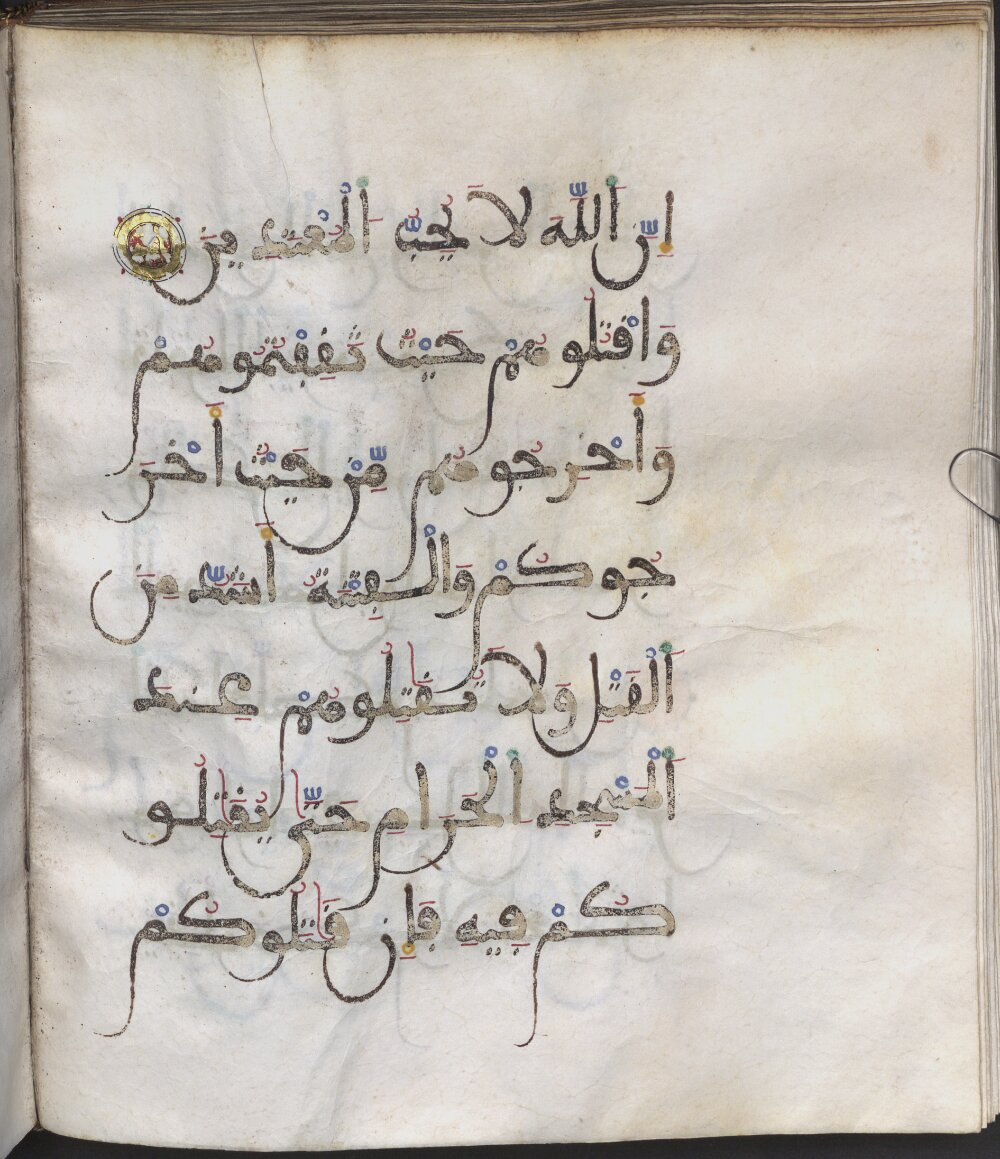 إِنَّ اَ۬للَّهَ لَا يُحِبُّ اُ۬لْمُعْتَدِينَ
وَاقْتُلُوهُمْ حَيْثُ ثَقِفْتُمُوهُمْ
وَأَخْرِجُوهُم مِّنْ حَيْثُ أَخْرَ
جُوكُمْ وَالْفِتْنَةُ أَشَدُّ مِنَ
اَ۬لْقَتْلِ وَلَا تُقَٰتِلُوهُمْ عِندَ
اَ۬لْمَسْجِدِ اِ۬لْحَرَامِ حَتَّىٰ يُقَٰتِلُو
كُمْ فِيهِ فَإِن قَٰتَلُوكُمْ